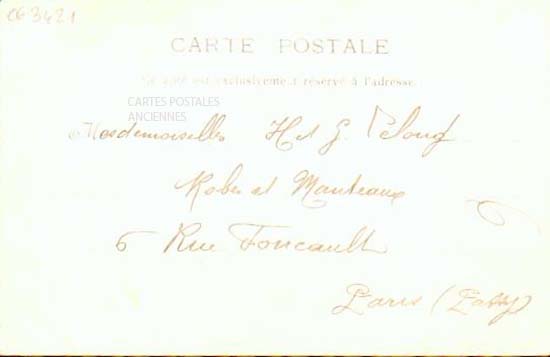 CG 3421
CARTE POSTALE
Ce côté est exclusivement réservé à l'adresse.
CARTES POSTALES
ANCIENNES
Mesdemoiselles H et G.
Robes et Manteaux
6 Rue Foucault
Paris (Passy)